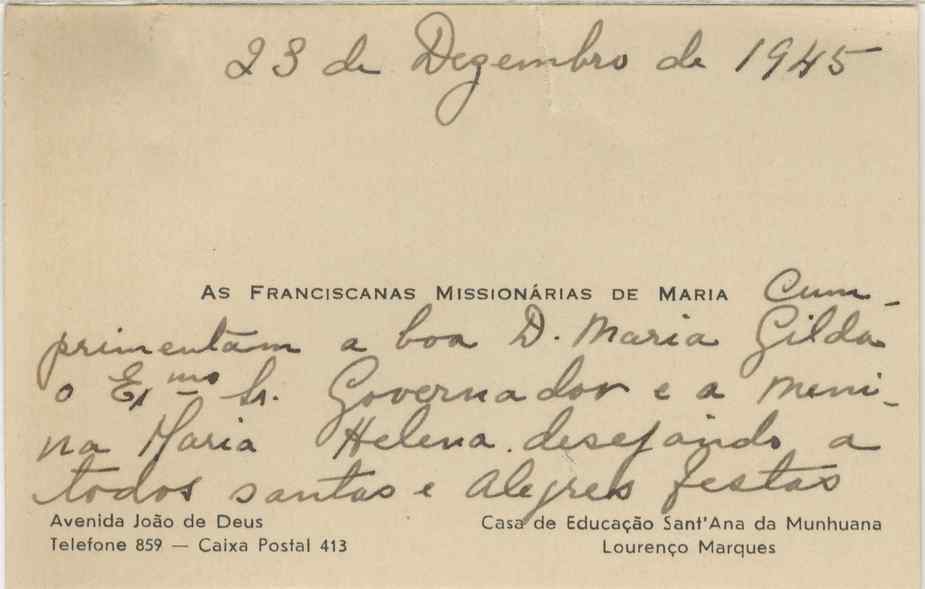 23 de Dezembro de 1945
As Franciscanas Missionárias de Maria Cum-
primentam a boa D. Maria Gilda
o Exmo Sr. Governador e a meni-
na Maria Helena desejando a
todos santas e alegres festas
Avenida João de Deus
Telefone 859 — Caixa Postal 413
Casa de Educação Sant'Ana da Munhuana
Lourenço Marques